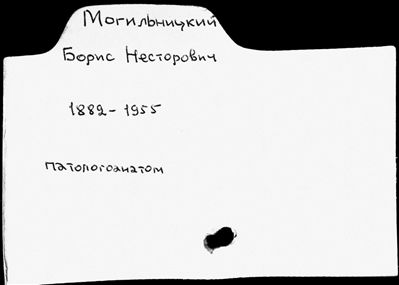 Могильницкий
Борис Несторович
1882-1955
патологоанатом